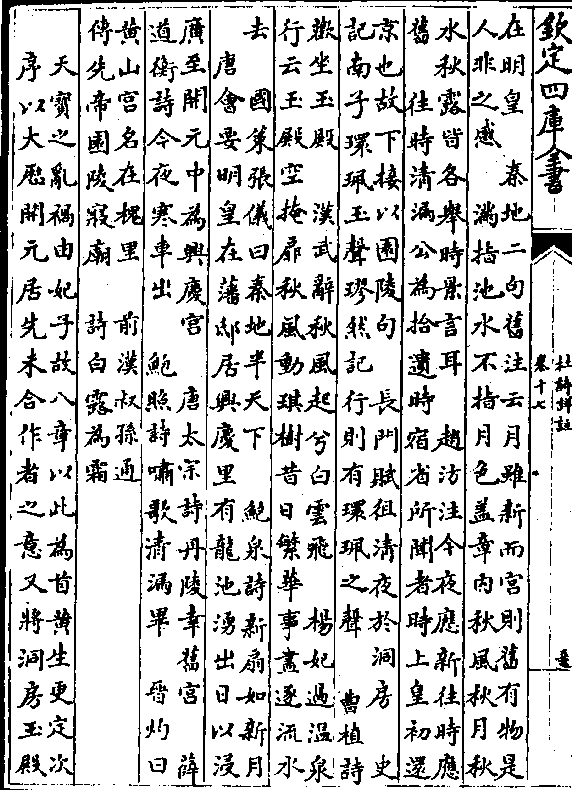 欽定四庫全書
杜詩詳註
卷十七
在明皇 秦地二句舊注云月雖新而宮則舊有物是
人非之感 滿指池水不指月色蓋章內秋風秋月秋
水秋露皆各舉時景言耳 趙汸注今夜應新往時應
舊 往時清漏公為拾遺時宿省所聞者時上皇初還
京也故下接以園陵句 長門賦徂清夜於洞房 史
記南子環珮玉聲璆然記行則有環珮之聲 曹植詩
歡坐玉殿 漢武辭秋風起兮白雲飛 楊妃過溫泉
行云玉殿空掩扉秋風動琪樹昔日繁華事盡逐流水
去 國策張儀曰秦地半天下 鮑泉詩新扇如新月
唐會要明皇在藩邸居興慶里有龍池湧出日以浸
廣至開元中為興慶宮 唐太宗詩丹陵幸舊宮 薛
道衡詩今夜寒車出 鮑照詩嘯歌清漏畢 晉灼曰
黃山宮名在槐里 前漢叔孫通
傳先帝園陵寢廟 詩白露為霜
天寶之亂禍由妃子故八章以此為首黃生更定次
序以大厯開元居先未合作者之意又將洞房玉殿